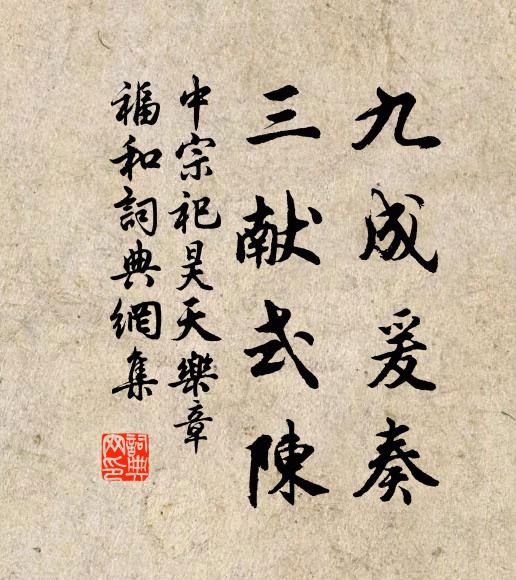 九成爰奏
三献式陳
中宗祀昊天樂章
福和詞典網集
詞典
网印